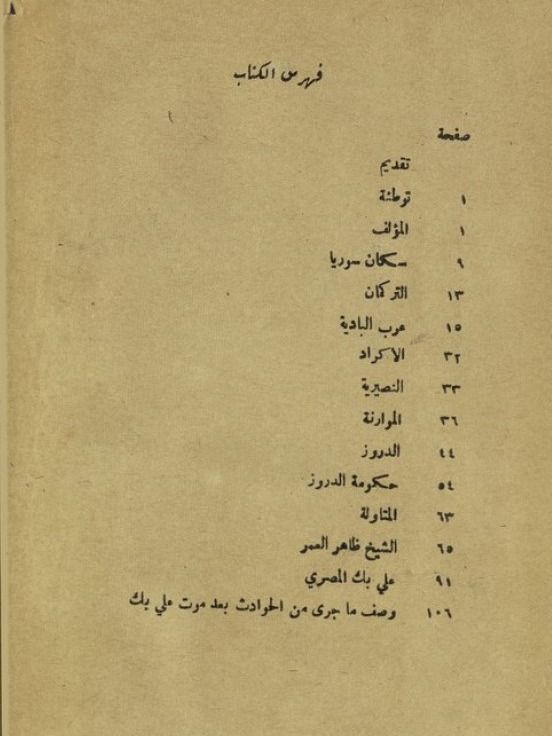 فهرس الكتاب
صفحة
تقديم
١ توطئة
١ المؤلف
٩ سكان سوريا
١٣ التركمان
١٥ عرب البادية
٣٢ الاكراد
٣٣ النصيرية
٣٦ الموارنة
٤٤ الدروز
٥٤ حكومة الدروز
٦٣ المتاولة
٦٥ الشيخ ظاهر العمر
٩١ علي بك المصري
١٠٦ وصف ما جرى من الحوادث بعد موت علي بك